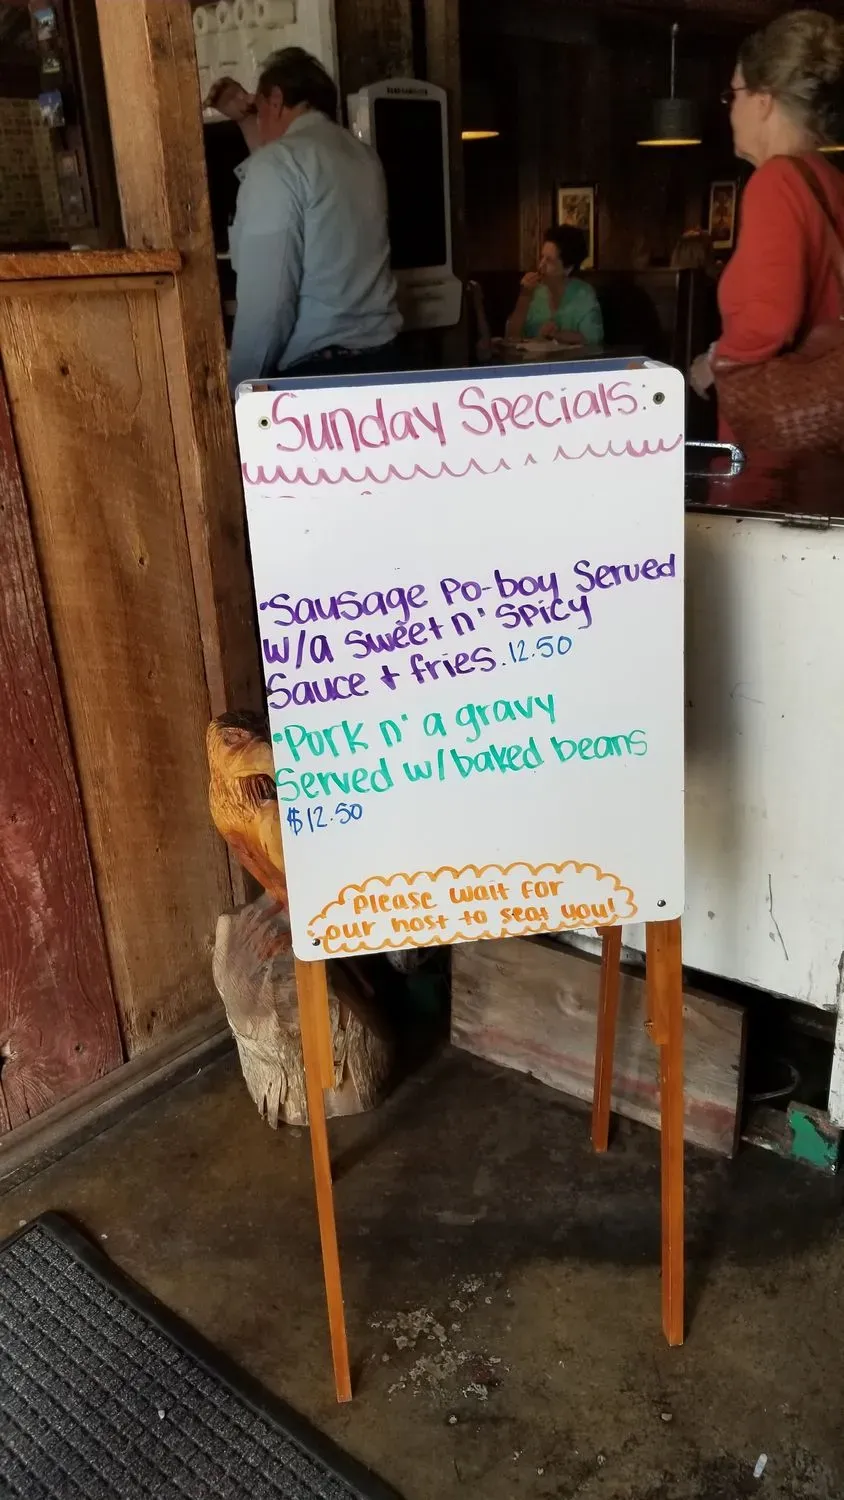 Sunday Specials:
•Sausage Po-boy Served
w/a sweet n' spicy
Sauce + fries. 12.50
•Pork n' a gravy
Served w/baked beans
$12.50
Please wait for
our host to seat you!